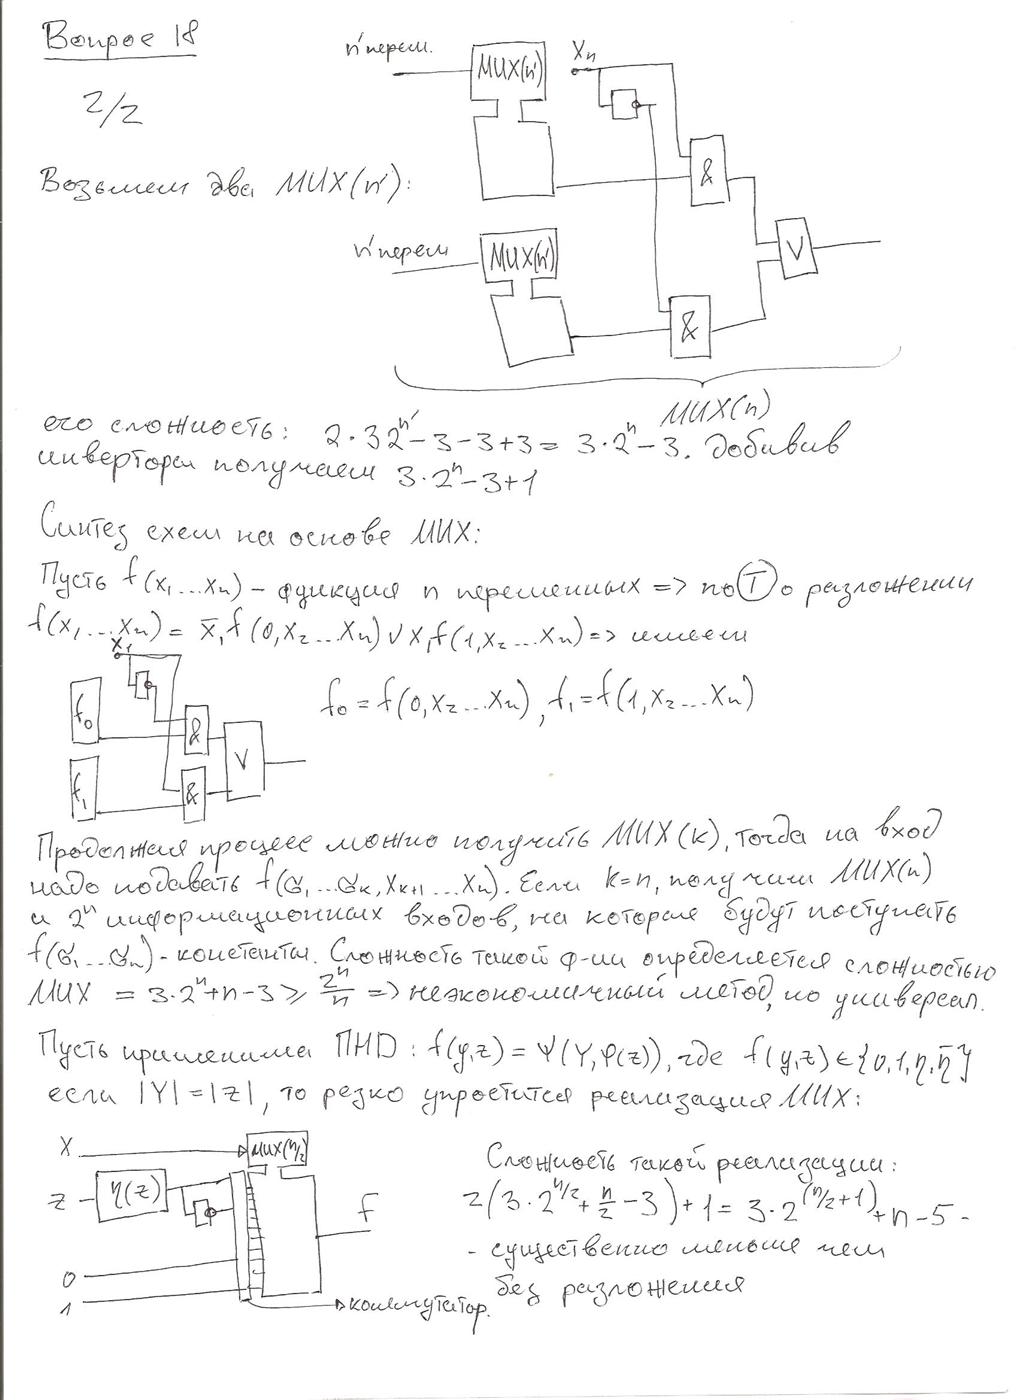 Вопрос 18
2/2
n' перем.
MUX(n')
Xn
&
Возьмем два MUX(n'):
n' перем
MUX(n')
V
&
MUX(n)
его сложность: 2·3 2^n' - 3 - 3 + 3 = 3·2^n - 3. Добивив
инвертора получаем 3·2^n - 3 + 1
Синтез схем на основе MUX:
Пусть f(x₁...xₙ) - функция n переменных => по Ⓣ о разложении
f(x₁...xₙ) = x̄₁f(0,x₂...xₙ) ∨ x₁f(1,x₂...xₙ) => имеем
X₁
f₀
&
V
f₁
&
f₀ = f(0,x₂...xₙ), f₁ = f(1,x₂...xₙ)
Продолжая процесс можно получить MUX(k), тогда на вход
надо подавать f(σ₁...σₖ,xₖ₊₁...xₙ). Если k=n, получим MUX(n)
и 2^n информационных входов, на которые будут поступать
f(σ₁...σₙ) - константы. Сложность такой ф-ии определяется сложностью
MUX = 3·2^n + n - 3 ⩾ 2^n/n => неэкономичный метод, но универсал.
Пусть применима ПНД: f(y,z) = Ψ(Y,φ(z)), где f(y,z) ∈ {0,1,η,η̄}
если |Y| = |z|, то резко упростится реализация MUX:
X
MUX(n/2)
z
η(z)
F
0
1
коммутатор.
Сложность такой реализации:
2(3·2^(n/2) + n/2 - 3) + 1 = 3·2^(n/2+1) + n - 5 -
- существенно меньше чем
без разложения